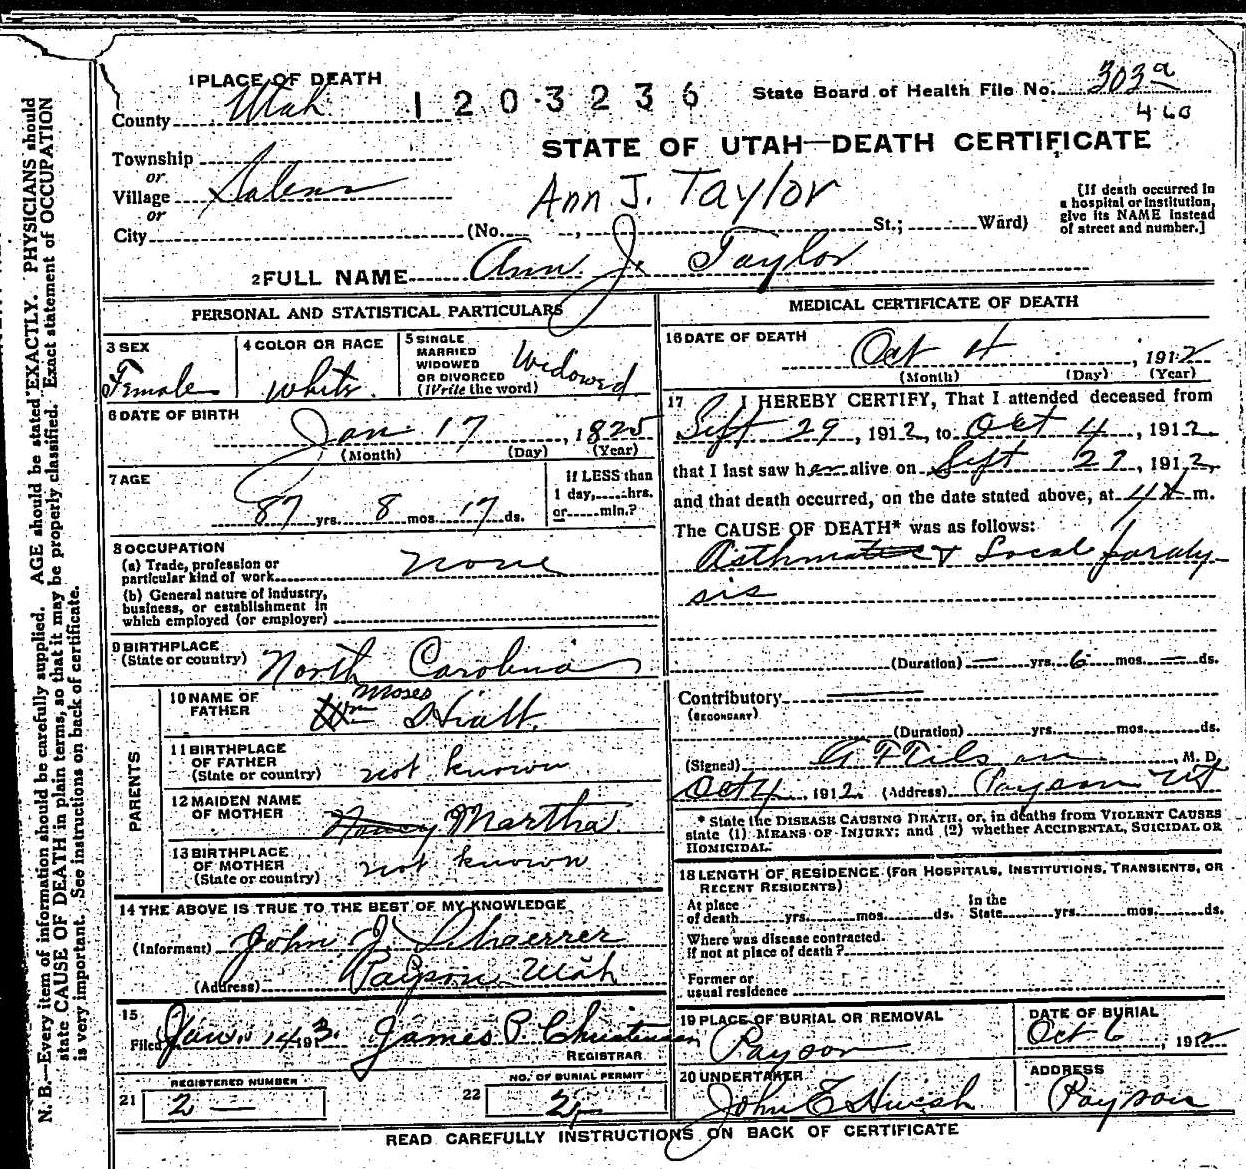 1 PLACE OF DEATH
County Utah
1203236
State Board of Health File No. 303a
460
STATE OF UTAH—DEATH CERTIFICATE
Township
or
Village Salem
or
City
Ann J. Taylor
(No. , St.; Ward)
[If death occurred in
a hospital or institution,
give its NAME instead
of street and number.]
2 FULL NAME Ann J. Taylor
PERSONAL AND STATISTICAL PARTICULARS
3 SEX
Female
4 COLOR OR RACE
White
5 SINGLE
MARRIED
WIDOWED
OR DIVORCED
(Write the word)
Widowed
6 DATE OF BIRTH
Jan 17, 1825
(Month) (Day) (Year)
7 AGE
87 yrs. 8 mos. 17 ds.
If LESS than
1 day, hrs.
or min.?
8 OCCUPATION
(a) Trade, profession or
particular kind of work none
(b) General nature of industry,
business, or establishment in
which employed (or employer)
9 BIRTHPLACE
(State or country) North Carolina
PARENTS
10 NAME OF
FATHER
Wm Moses Hiatt.
11 BIRTHPLACE
OF FATHER
(State or country) not known
12 MAIDEN NAME
OF MOTHER
Nancy Martha
13 BIRTHPLACE
OF MOTHER
(State or country) not known
14 THE ABOVE IS TRUE TO THE BEST OF MY KNOWLEDGE
(Informant) John J. Schaerrer
(Address) Payson Utah
15
Filed Jan. 14 1913. James P. Christensen
REGISTRAR
21 REGISTERED NUMBER
2 —
22 NO. OF BURIAL PERMIT
MEDICAL CERTIFICATE OF DEATH
16 DATE OF DEATH
Oct 4, 1912
(Month) (Day) (Year)
17 I HEREBY CERTIFY, That I attended deceased from
Sept 29, 1912, to Oct 4, 1912.
that I last saw her alive on Sept 29, 1912,
and that death occurred, on the date stated above, at 4 m.
The CAUSE OF DEATH* was as follows:
Asthma & Local paraly-
sis
(Duration) — yrs. 6 mos. — ds.
Contributory
(SECONDARY)
(Duration) yrs. mos. ds.
(Signed) , M. D.
Oct 4, 1912. (Address) Payson Ut
* State the DISEASE CAUSING DEATH, or, in deaths from VIOLENT CAUSES
state (1) MEANS OF INJURY; and (2) whether ACCIDENTAL, SUICIDAL OR
HOMICIDAL.
18 LENGTH OF RESIDENCE (FOR HOSPITALS, INSTITUTIONS, TRANSIENTS, OR
RECENT RESIDENTS)
At place
of death yrs. mos. ds.
In the
State yrs. mos. ds.
Where was disease contracted.
If not at place of death?
Former or
usual residence
19 PLACE OF BURIAL OR REMOVAL
Payson
DATE OF BURIAL
Oct 6, 1912
20 UNDERTAKER
John E Huish
ADDRESS
Payson
READ CAREFULLY INSTRUCTIONS ON BACK OF CERTIFICATE
N. B.—Every item of information should be carefully supplied. AGE should be stated EXACTLY. PHYSICIANS should
state CAUSE OF DEATH in plain terms, so that it may be properly classified. Exact statement of OCCUPATION
is very important. See instructions on back of certificate.